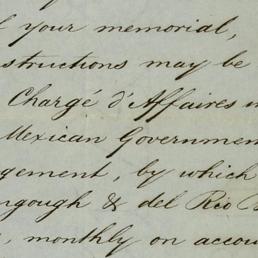 your memorial,
structions may be
Chargé d'Affaires in
Mexican Government
gement, by which
ngough & del Rio
, monthly on accou